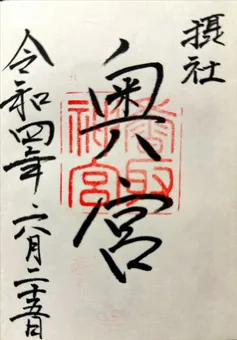 摂社
奥宮
香取神宮
令和四年六月二十五日